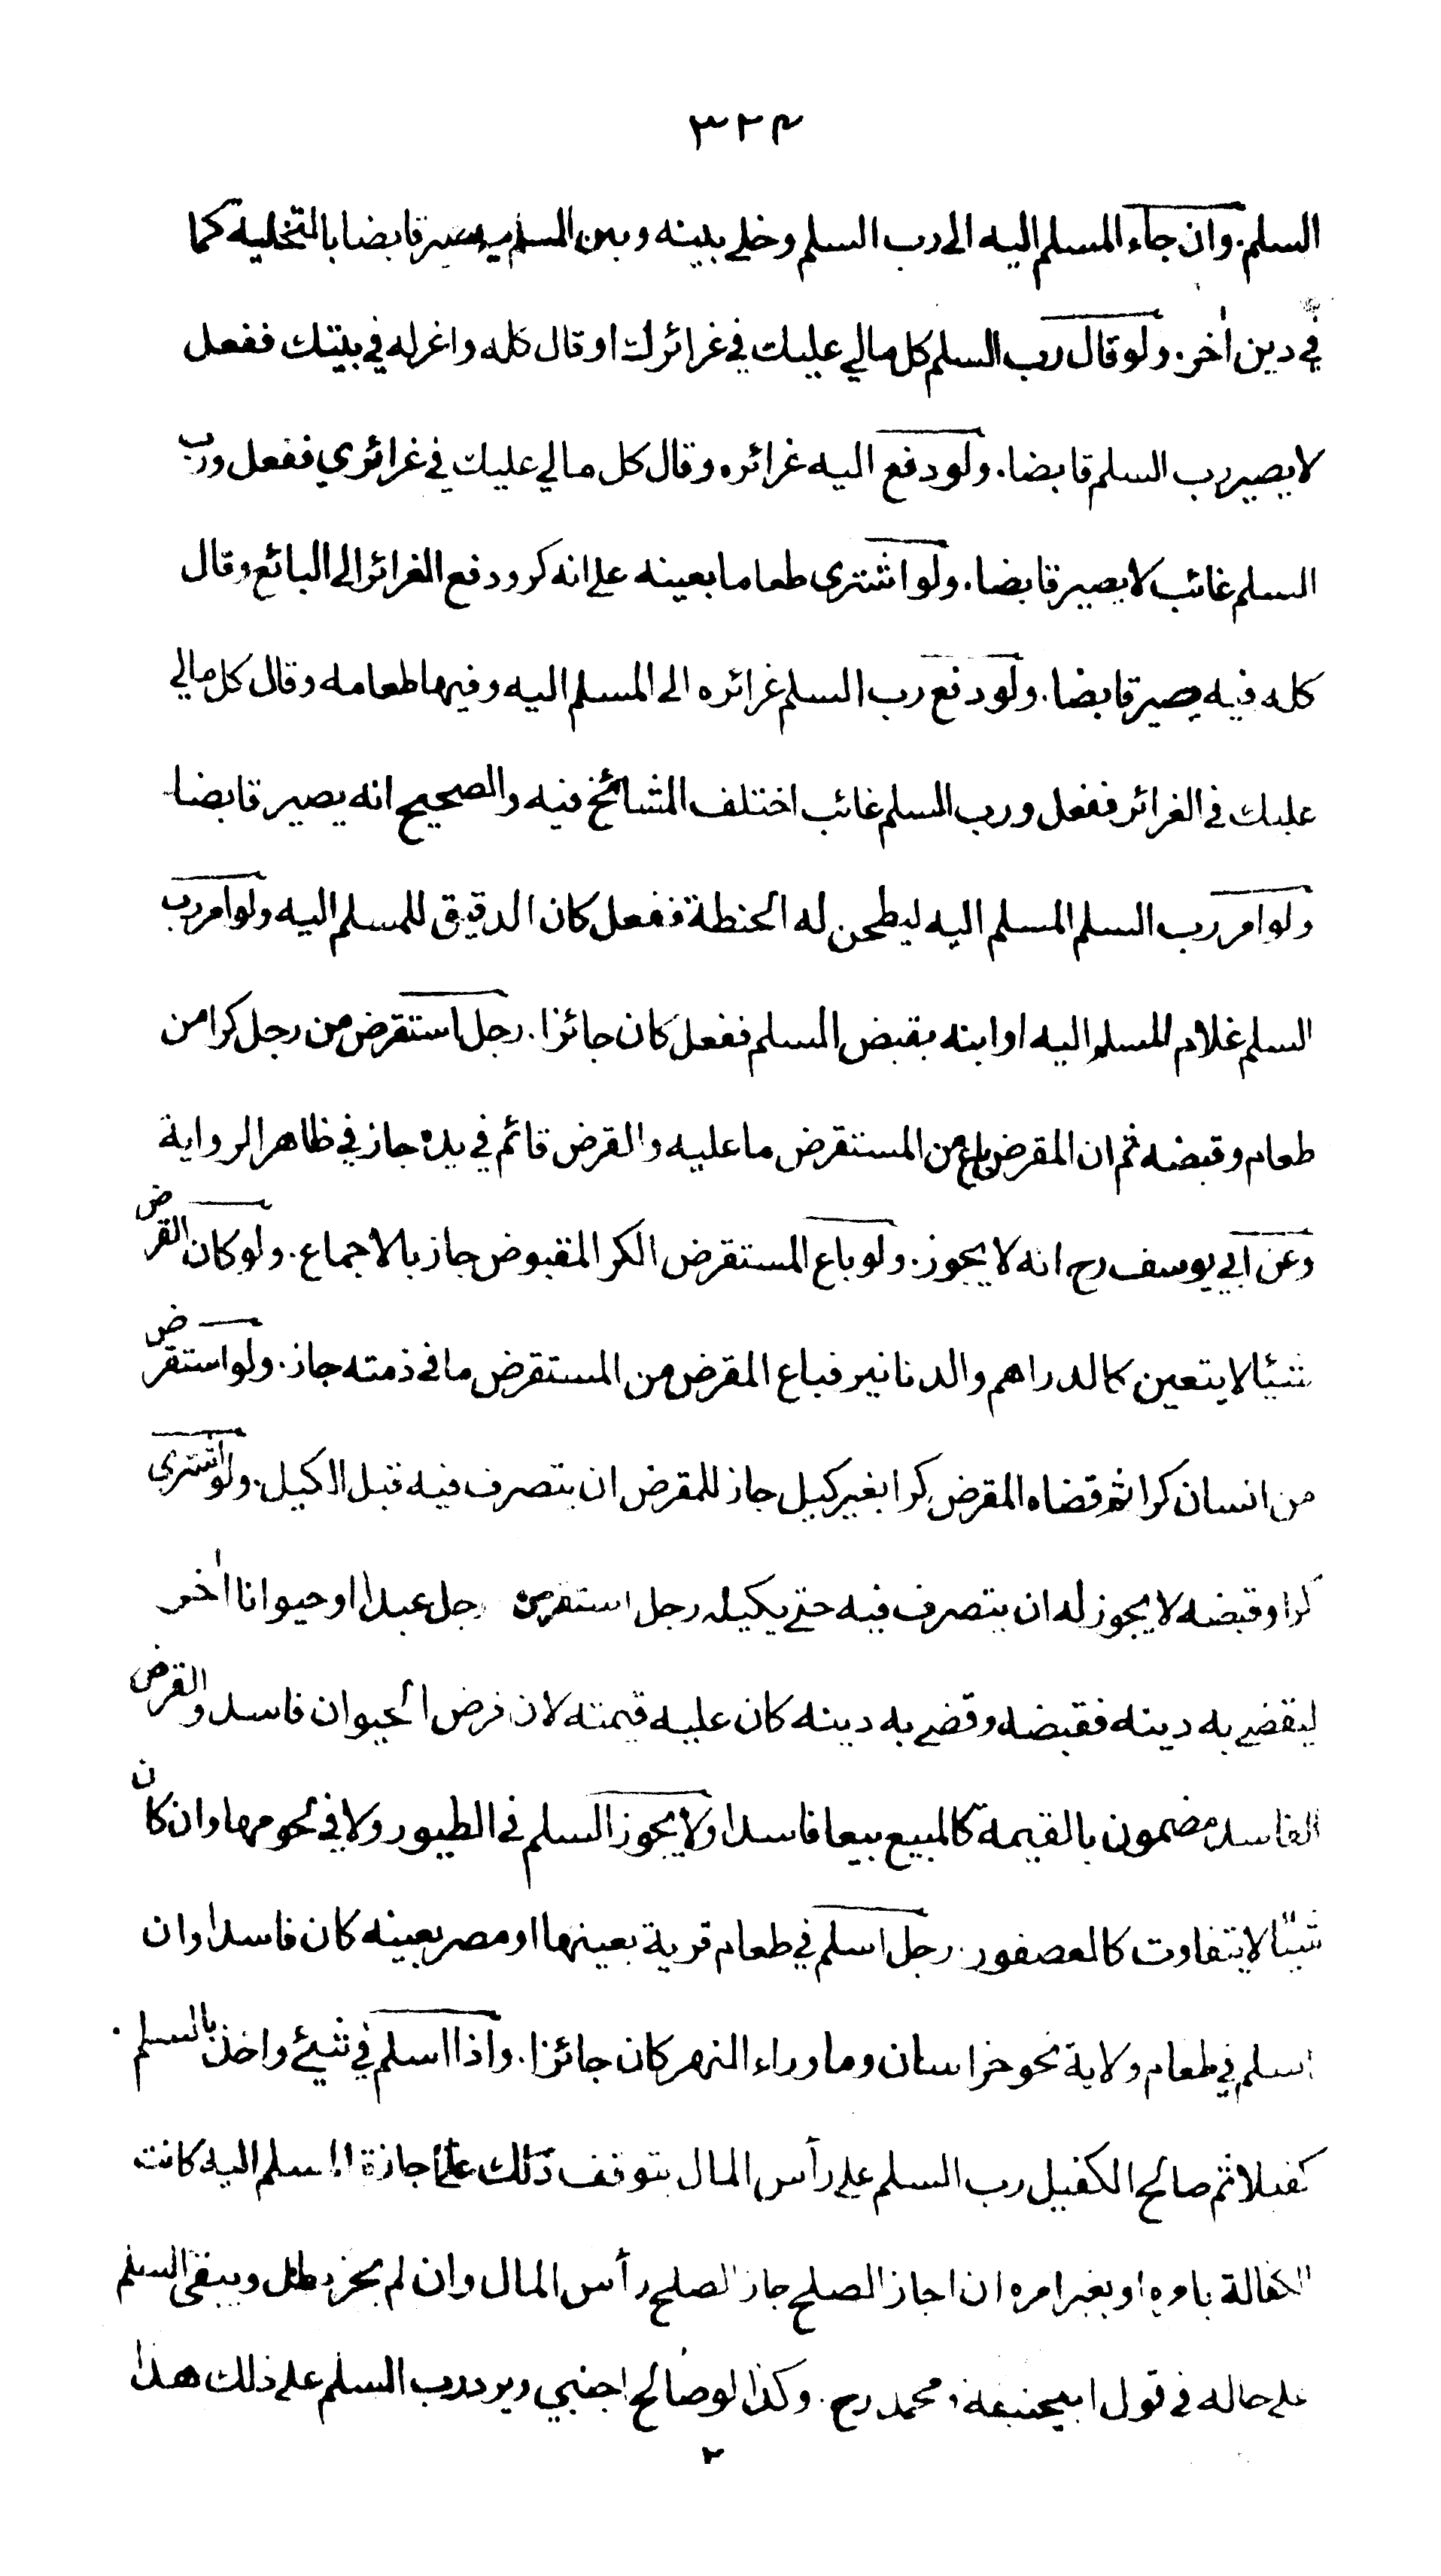 ٣٢٤
السلم. وان جاء المسلم اليه الى رب السلم وخلى بينه وبين السلم يصير قابضا بالتخلية كما
في دين اٰخر. ولو قال رب السلم كل مالي عليك في غرائرك او قال كله واعزله في بيتك ففعل
لا يصير رب السلم قابضا. ولو دفع اليه غرائره وقال كل مالي عليك في غرائري ففعل ورب
السلم غائب لا يصير قابضا. ولو اشترى طعاما بعينه على انه كر ودفع الغرائر الى البائع وقال
كله فيه يصير قابضا. ولو دفع رب السلم غرائره الى المسلم اليه وفيها طعامه وقال كل مالي
عليك في الغرائر ففعل ورب السلم غائب اختلف المشائخ فيه والصحيح انه يصير قابضا
ولو امر رب السلم المسلم اليه ليطحن له الحنطة ففعل كان الدقيق للمسلم اليه ولو امر رب
السلم غلام المسلم اليه او ابنه بقبض المسلم ففعل كان جائزا. رجل استقرض من رجل كرا من
طعام وقبضه ثم ان المقرض باع من المستقرض ما عليه والقرض قائم في يده جاز في ظاهر الرواية
وعن ابي يوسف رح انه لا يجوز. ولو باع المستقرض الكر المقبوض جاز بالاجماع. ولو كان القرض
شيئا لا يتعين كالدراهم والدنانير فباع المقرض من المستقرض ما في ذمته جاز. ولو استقرض
من انسان كرا ثم قضاه المقرض كرا بغير كيل جاز للمقرض ان يتصرف فيه قبل الكيل. ولو اشترى
كرا وقبضه لا يجوز له ان يتصرف فيه حتى يكيله رجل استقرض رجل عبدا او حيوانا اٰخر
ليقضي به دينه فقبضه وقضى به دينه كان عليه قيمته لان قرض الحيوان فاسد والقرض
الفاسد مضمون بالقيمة كالمبيع بيعا فاسدا ولا يجوز السلم في الطيور ولا في لحومها وان كان
شيئا لا يتفاوت كالعصفور. رجل اسلم في طعام قرية بعينها او مصر بعينه كان فاسدا وان
اسلم في طعام ولاية نحو خراسان وما وراء النهر كان جائزا. واذا اسلم في شيئ واخذ بالسلم
كفيلا ثم صالح الكفيل رب السلم على رأس المال يتوقف ذلك على اجازة المسلم اليه كانت
الكفالة بامره او بغير امره ان اجاز الصلح جاز الصلح رأس المال وان لم يجز بطل ويبقى السلم
على حاله في قول ابيحنيفة ومحمد رح. وكذا لو صالح اجنبي ويرد رب السلم على ذلك هذا
٢